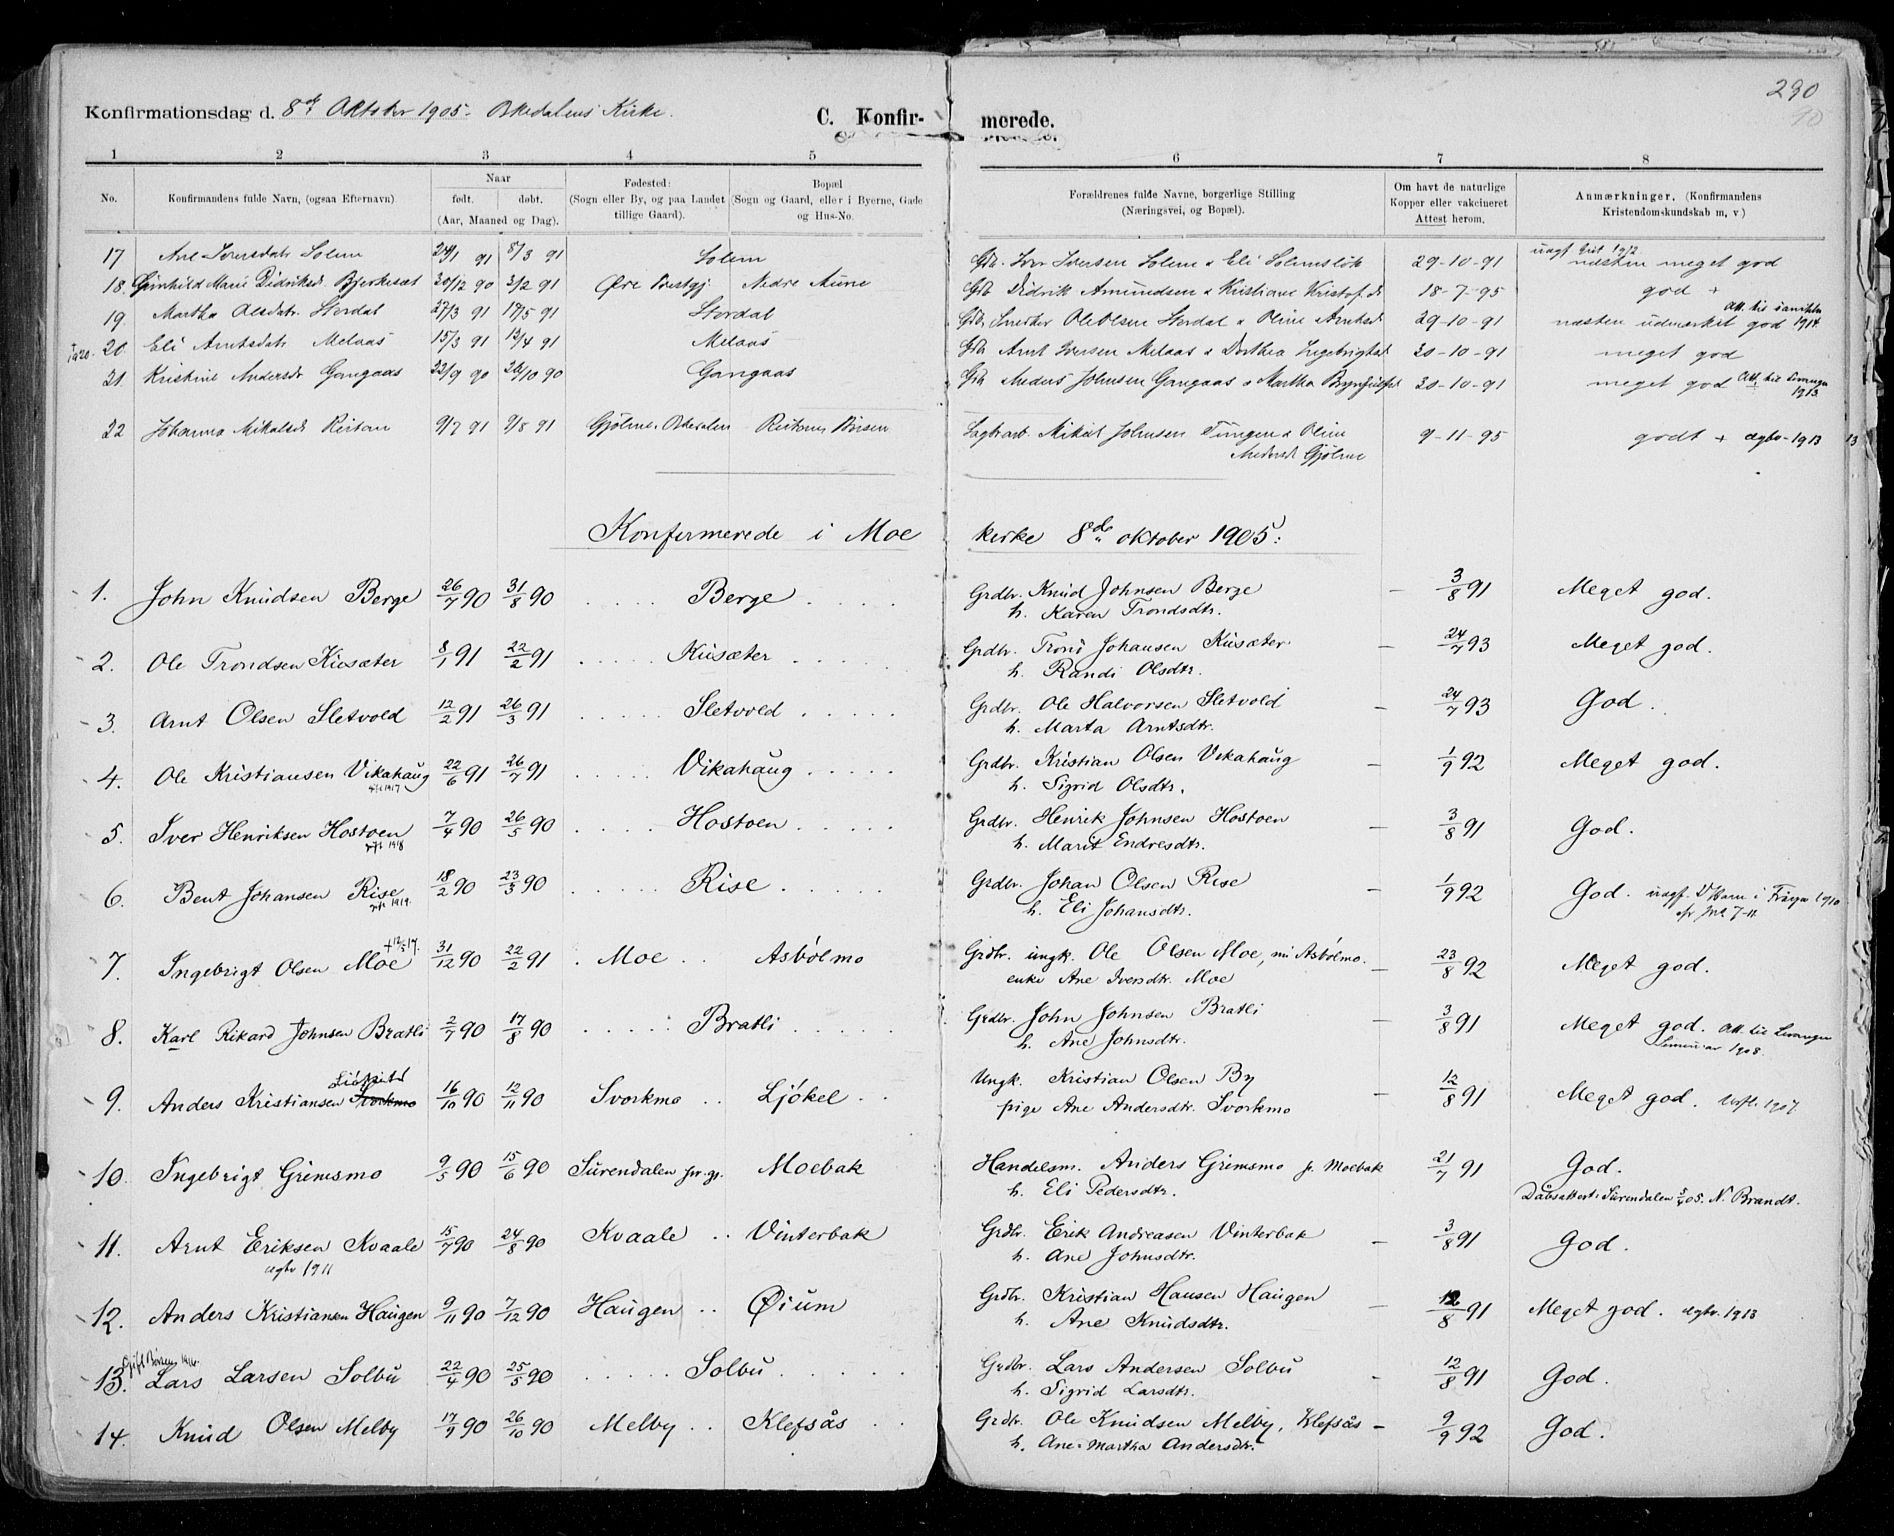 290
Konfirmationsdag d. 8de Oktober 1905. Orkedalens Kirke.
C. Konfir-
merede.
1 2 3 4 5 6 7 8
No. Konfirmandens fulde Navn, (ogsaa Efternavn) Naar født. døbt. (Aar, Maaned og Dag). Fødested: (Sogn eller By, og paa Landet tillige Gaard). Bopæl (Sogn og Gaard, eller i Byerne, Gade og Hus-No. Forældrenes fulde Navne, borgerlige Stilling (Næringsvei, og Bopæl). Om havt de naturlige Kopper eller vakcineret Attest herom. Anmærkninger. (Konfirmandens Kristendomskundskab m, v)
17 Ane Iversdatr Solem 24/1 91 8/3 91 Solem Gbr. Iver Iversen Solem & Eli Solemsløk 29-10-91 næsten meget god
18. Gunhild Marie Didriksd. Bjerkesæt 30/12 90 3/2 91 Øre Prestgj. Nedre Aune Gbr Didrik Amundsen & Kristiane Kristofdr 18-7-95 god +
19. Martha Olsdatr. Stordal 27/3 91 17/5 91 Stordal Gbr Snedker Ole Olsen Stordal & Oline Arntsdr 29-10-91 næsten udmerket god 1914.
20. Eli Arntsdatr Melaas 15/3 91 12/4 91 Melaas Gbr Arnt Iversen Melaas & Dorthea Ingebrigtsd 30-10-91 meget god
21. Kristine Andersdr Gangaas 22/9 90 26/10 90 Gangaas Gbr Anders Johnsen Gangaas & Martha Brynjulfsd 30-10-91 meget god Att. til Levanger 1913.
22 Johanna Mikalsdr Reitan 9/7 91 9/8 91 Gjølme, Orkedalen Reitan, Børsen Mikal Johnsen Tungen & Oline Andersdr Gjølme 9-11-95 godt + ægtv-1913 13
Konfermerede i Moe kirke 8de oktober 1905:
1. John Knudsen Berge 26/7 90 31/8 90 Berge Grdbr. Knud Johnsen Berge - 3/8 91 Meget god.
h. Karen Trondsdtr.
2. Ole Trondsen Kusæter 8/1 91 22/2 91 Kusæter Grdbr. Trond Johansen Kusæter - 24/7 93 Meget god.
h. Randi Olsdtr.
3. Arnt Olsen Sletvold 12/2 91 26/3 91 Sletvold Grdbr. Ole Halvorsen Sletvold - 24/7 93 God.
h. Marta Arntsdtr.
4. Ole Kristiansen Vikahaug 22/6 91 26/7 91 Vikahaug Grdbr. Kristian Olsen Vikahaug - 1/9 92 Meget god.
1917 h. Sigrid Olsdtr.
5. Iver Henriksen Hostoen 7/4 90 26/5 90 Hostoen Grdbr. Henrik Johnsen Hostoen - 3/8 91 God.
gift 1918 h. Marit Endresdtr.
6. Bent Johansen Rise 18/2 90 23/3 90 Rise Grdbr. Johan Olsen Rise - 1/9 92 God.
gift 1919. h. Eli Johansdtr.
7. Ingebrigt Olsen Moe 31/12 90 22/2 91 Moe Asbølmo Grdbr. ungk. Ole Olsen Moe, nu Asbølmo. - 23/8 92 Meget god.
enke Ane Iversdtr. Moe
8. Karl Rikard Johnsen Bratli 2/7 90 17/8 90 Bratli Grdbr. John Johnsen Bratli - 3/8 91 Meget god. Att. til Levanger
h. Ane Johnsdtr. Seminar 1908.
9. Anders Kristiansen Svorkmo 16/10 90 12/11 90 Svorkmo Ljøkel Ungk. Kristian Olsen By - 12/8 91 Meget god. 1907.
pige Ane Andersdtr. Svorkmo
10. Ingebrigt Grimsmo 9/5 90 15/6 90 Surendalen pr.gj. Moebak Handelsm. Anders Grimsmo p. Moebak 21/7 91 God.
h. Eli Pedersdtr. Dåbsattest: Surendalen 5/4 05. N. Brandt.
11. Arnt Eriksen Kvaale 15/7 90 24/8 90 Kvaale Vinterbak Grdbr. Erik Andreasen Vinterbak - 3/8 91 God.
ægtv 1911 h. Ane Johnsdtr.
12. Anders Kristiansen Haugen 9/11 90 7/12 90 Haugen Øium Grdbr. Kristian Hansen Haugen - 12/8 91 Meget god. ægtv. 1913
h. Ane Knudsdtr.
Gift Børsen 1916.
13. Lars Larsen Solbu 22/4 90 25/5 90 Solbu Grdbr. Lars Andersen Solbu - 12/8 91 God.
h. Sigrid Larsdtr.
14. Knud Olsen Melby 17/9 90 26/10 90 Melby Klefsås Grdbr. Ole Knudsen Melby, Klefsås - 9/9 92 God.
h. Ane Martha Andersdtr.